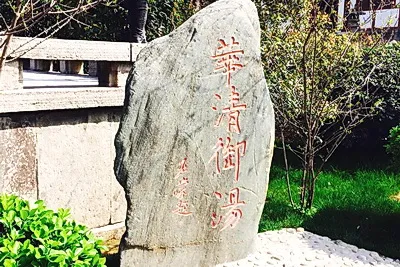 華清御湯